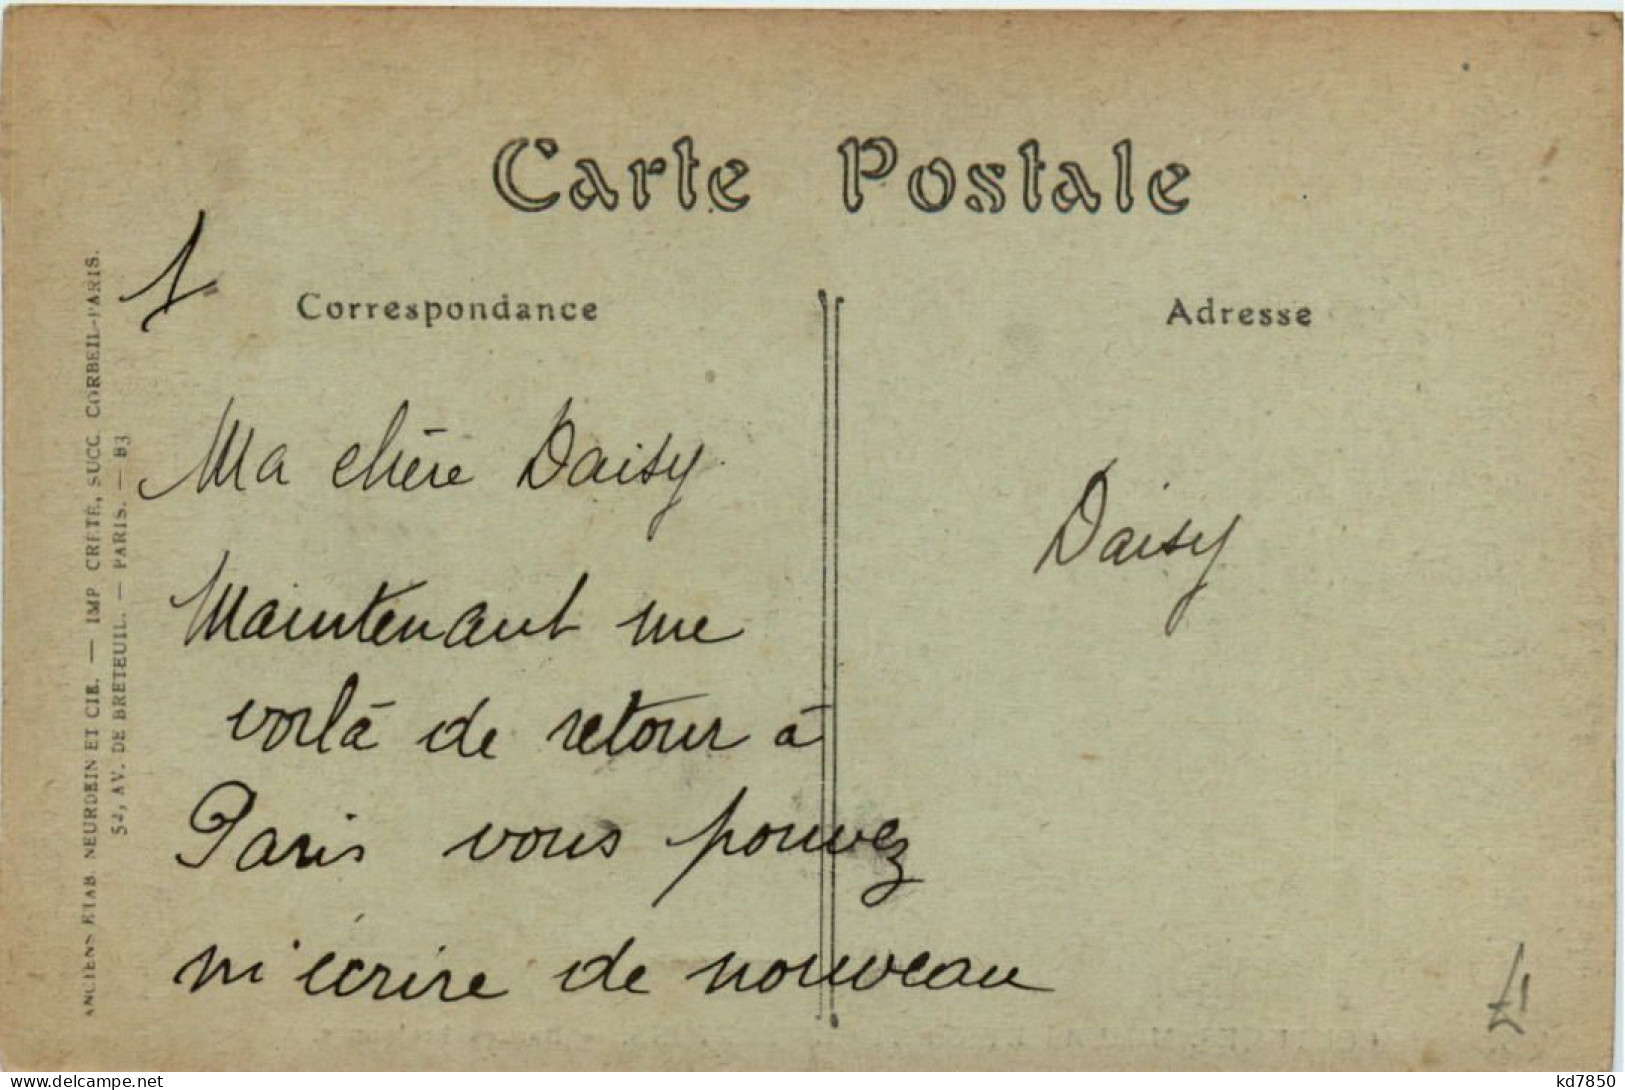 Carte Postale
Correspondance
Adresse
1
Ma chère Daisy
Maintenant me
voilà de retour à
Paris vous pouvez
m'écrire de nouveau
Daisy
ANCIENS ETAB. NEURDEIN ET CIE. — IMP. CRÉTÉ, SUCC. CORBEIL-PARIS.
52, AV. DE BRETEUIL. — PARIS. — B3
kd7850